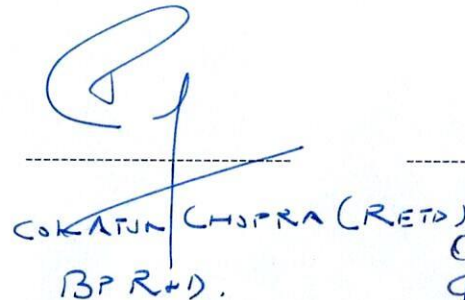 COL ATUN CHOPRA (RETD)
BP R&D.